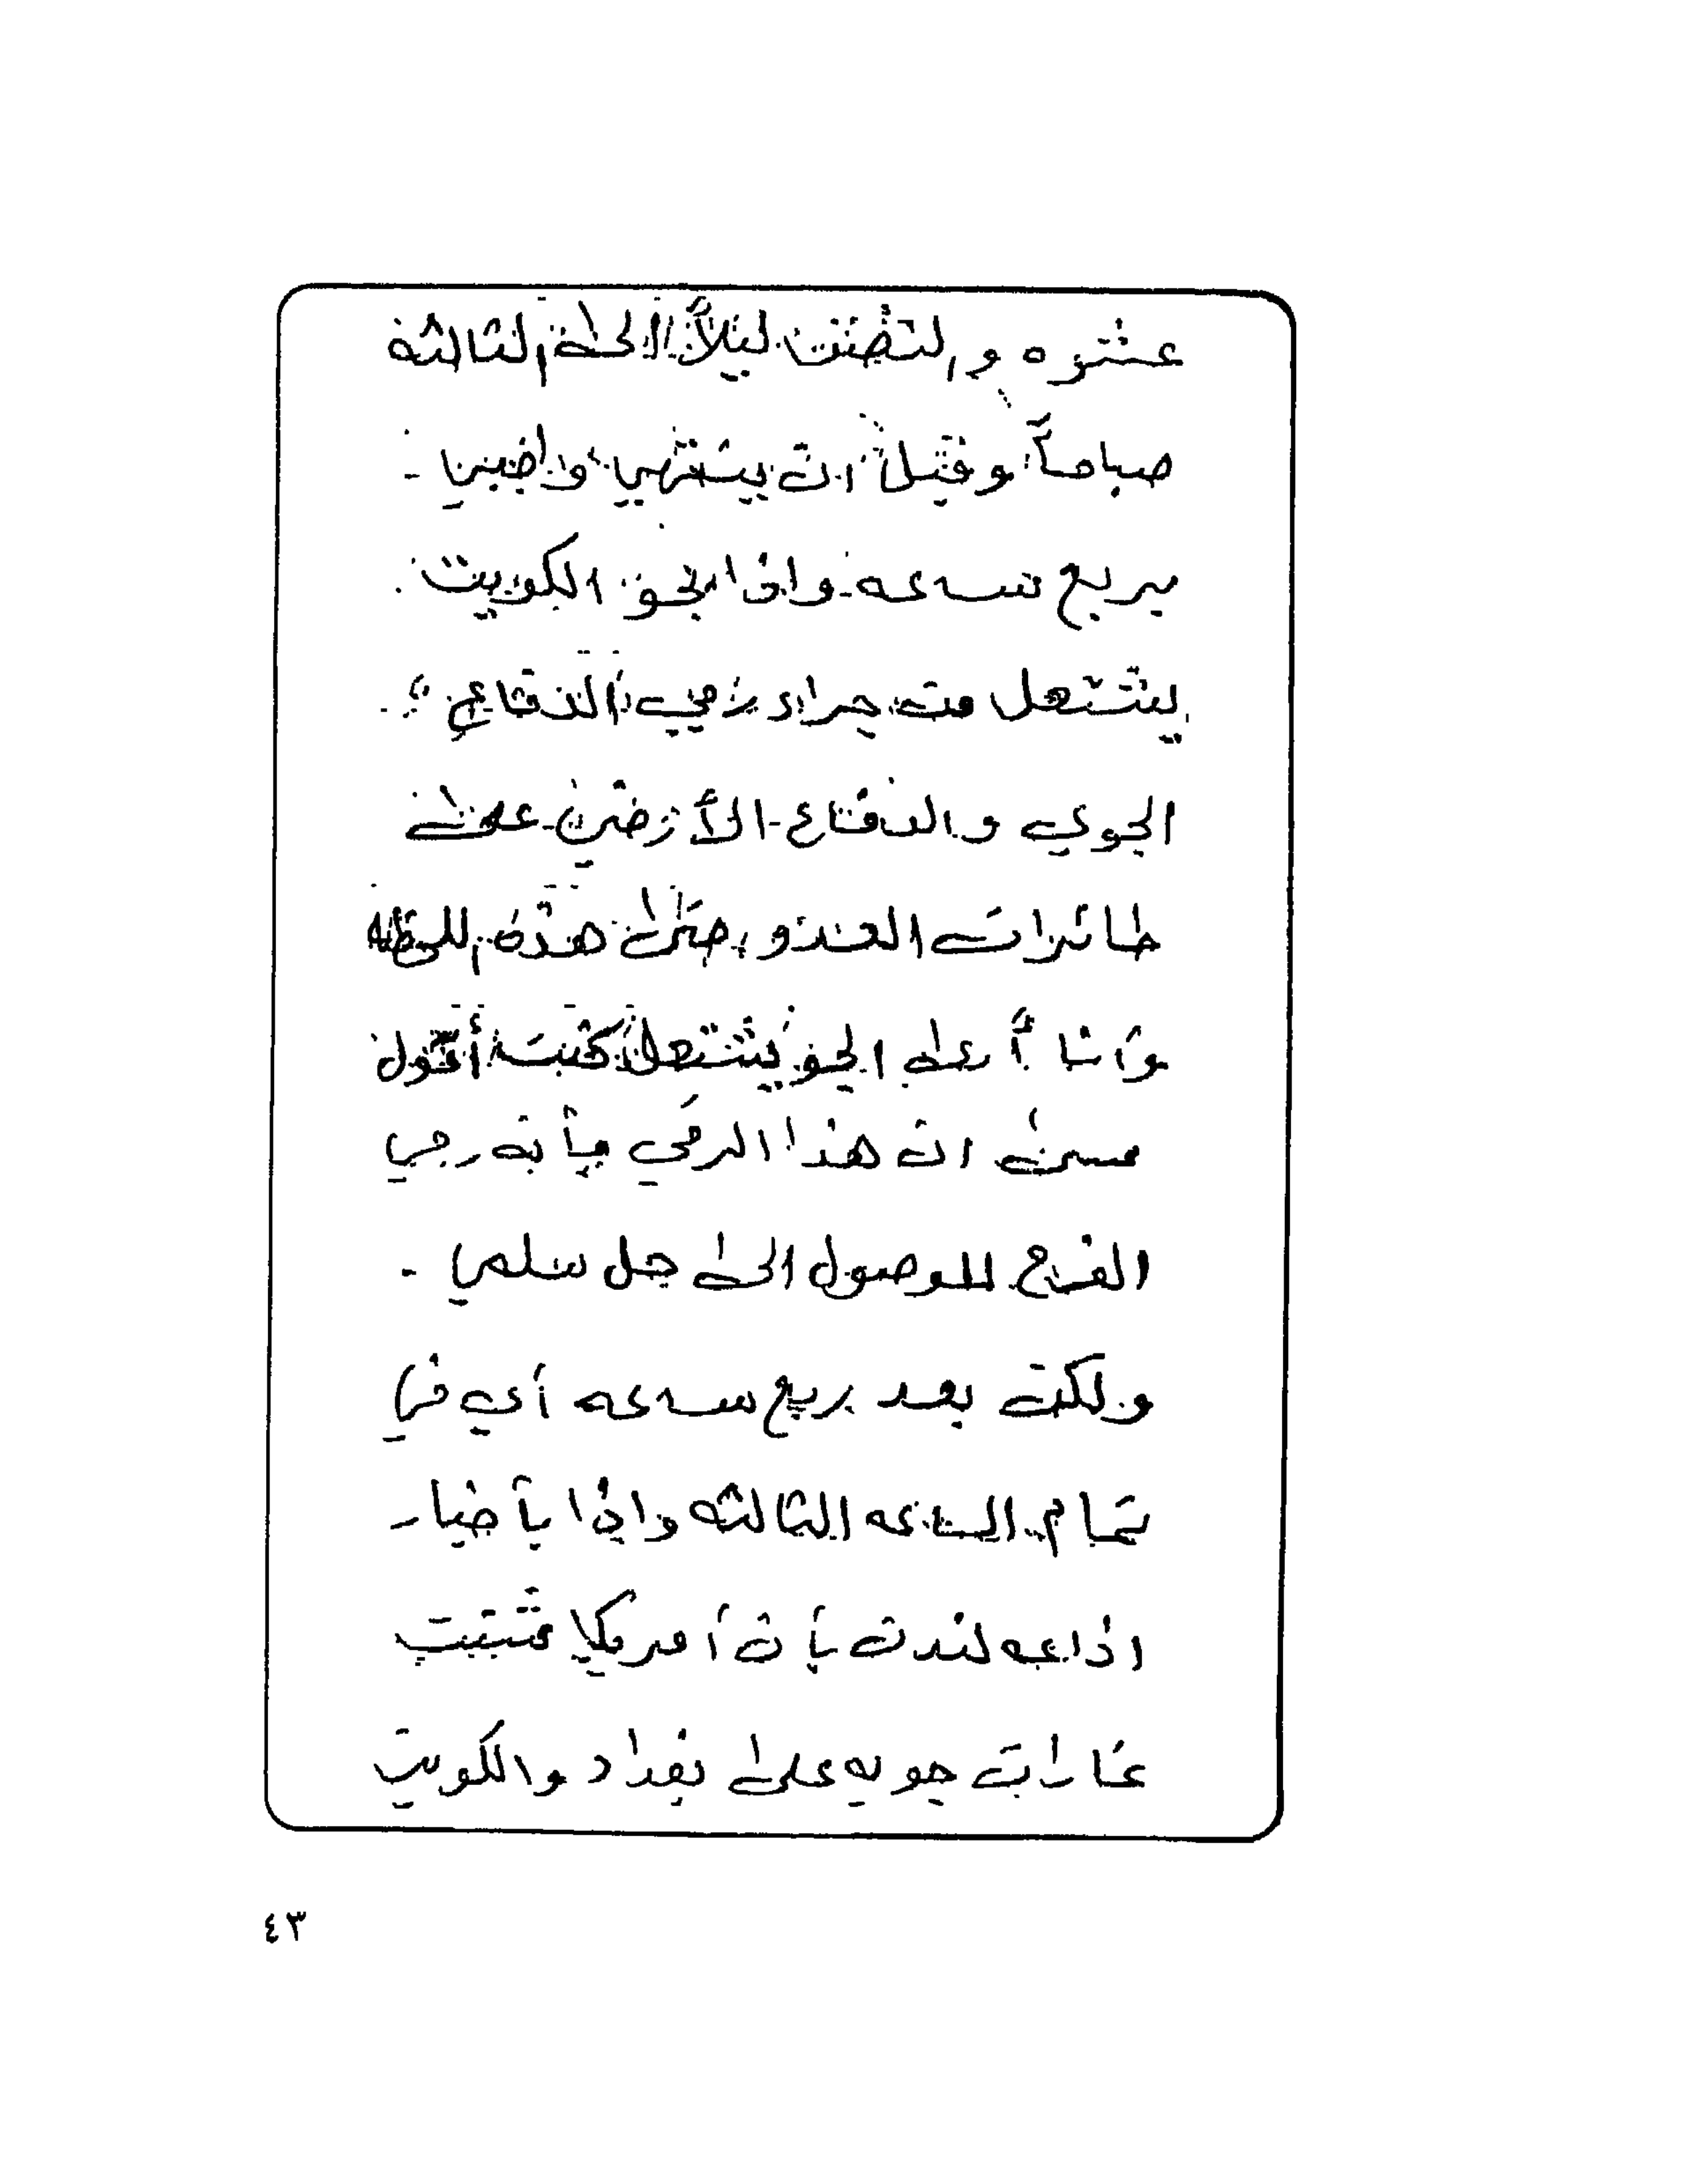 عشره والنصف ليلاً الى الثالثه
صباحاً وقبل ان ينتهي واجبي -
بربع ساعه واذا بجو الكويت
يشتعل من جراء رمي الدفاع
الجوي والدفاع الأرضي على
طائرات العدو حتى هذه اللحظه
وانا أرى الجو يشتعل كنت أقول
عسى ان هذا الرمي بأنه رجي
الفرج للوصول الى حل سلمي -
ولكن بعد ربع ساعه أي في
تمام الساعه الثالثه واذا بأخبار
اذاعه لندن بأن أمريكا شنت
غارات جويه على بغداد والكويت
٤٣